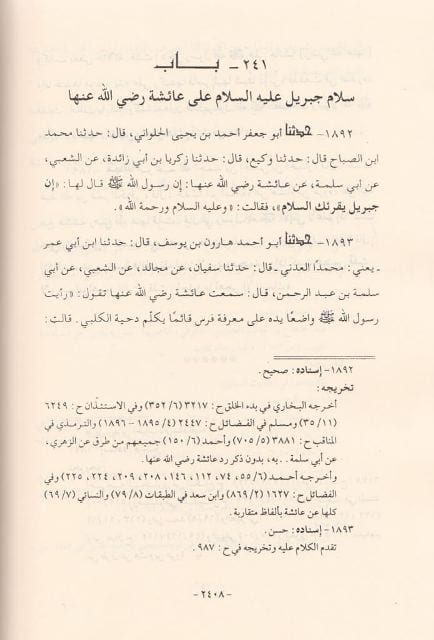 ٢٤١ - بـــاب
سلام جبريل عليه السلام على عائشة رضي الله عنها
١٨٩٢ - حدثنا أبو جعفر أحمد بن يحيى الحلواني، قال: حدثنا محمد
ابن الصباح قال: حدثنا وكيع، قال: حدثنا زكريا بن أبي زائدة، عن الشعبي،
عن أبي سلمة، عن عائشة رضي الله عنها: إن رسول الله ﷺ قال لها: «إن
جبريل يقرئك السلام»، فقالت: «وعليه السلام ورحمة الله».
١٨٩٣ - حدثنا أبو أحمد هارون بن يوسف، قال: حدثنا ابن أبي عمر
ـ يعني: محمدًا العدني ـ قال: حدثنا سفيان، عن مجالد، عن الشعبي، عن أبي
سلمة بن عبد الرحمن، قال: سمعت عائشة رضي الله عنها تقول: «رأيت
رسول الله ﷺ واضعًا يده على معرفة فرس قائمًا يكلّم دحية الكلبي. قالت:
١٨٩٢ - إسناده: صحيح.
تخريجه:
أخرجه البخاري في بدء الخلق ح: ٣٢١٧ (٣٥٢/٦) وفي الاستئذان ح: ٦٢٤٩
(٣٥/١١) ومسلم في الفضائل ح: ٢٤٤٧ (١٨٩٥/٤ - ١٨٩٦) والترمذي في
المناقب ح: ٣٨٨١ (٧٠٥/٥) وأحمد (١٥٠/٦) جميعهم من طرق عن الزهري،
عن أبي سلمة . . به، بدون ذكر رد عائشة رضي الله عنها.
وأخرجه أحمد (٥٥/٦، ٧٤، ١١٢، ١٤٦، ٢٠٨، ٢٠٩، ٢٢٤، ٢٢٥) وفي
الفضائل ح: ١٦٢٧ (٨٦٩/٢) وابن سعد في الطبقات (٧٩/٨) والنسائي (٦٩/٧)
كلها عن عائشة بألفاظ متقاربة.
١٨٩٣ - إسناده: حسن.
تقدم الكلام عليه وتخريجه في ح: ٩٨٧.
- ٢٤٠٨ -